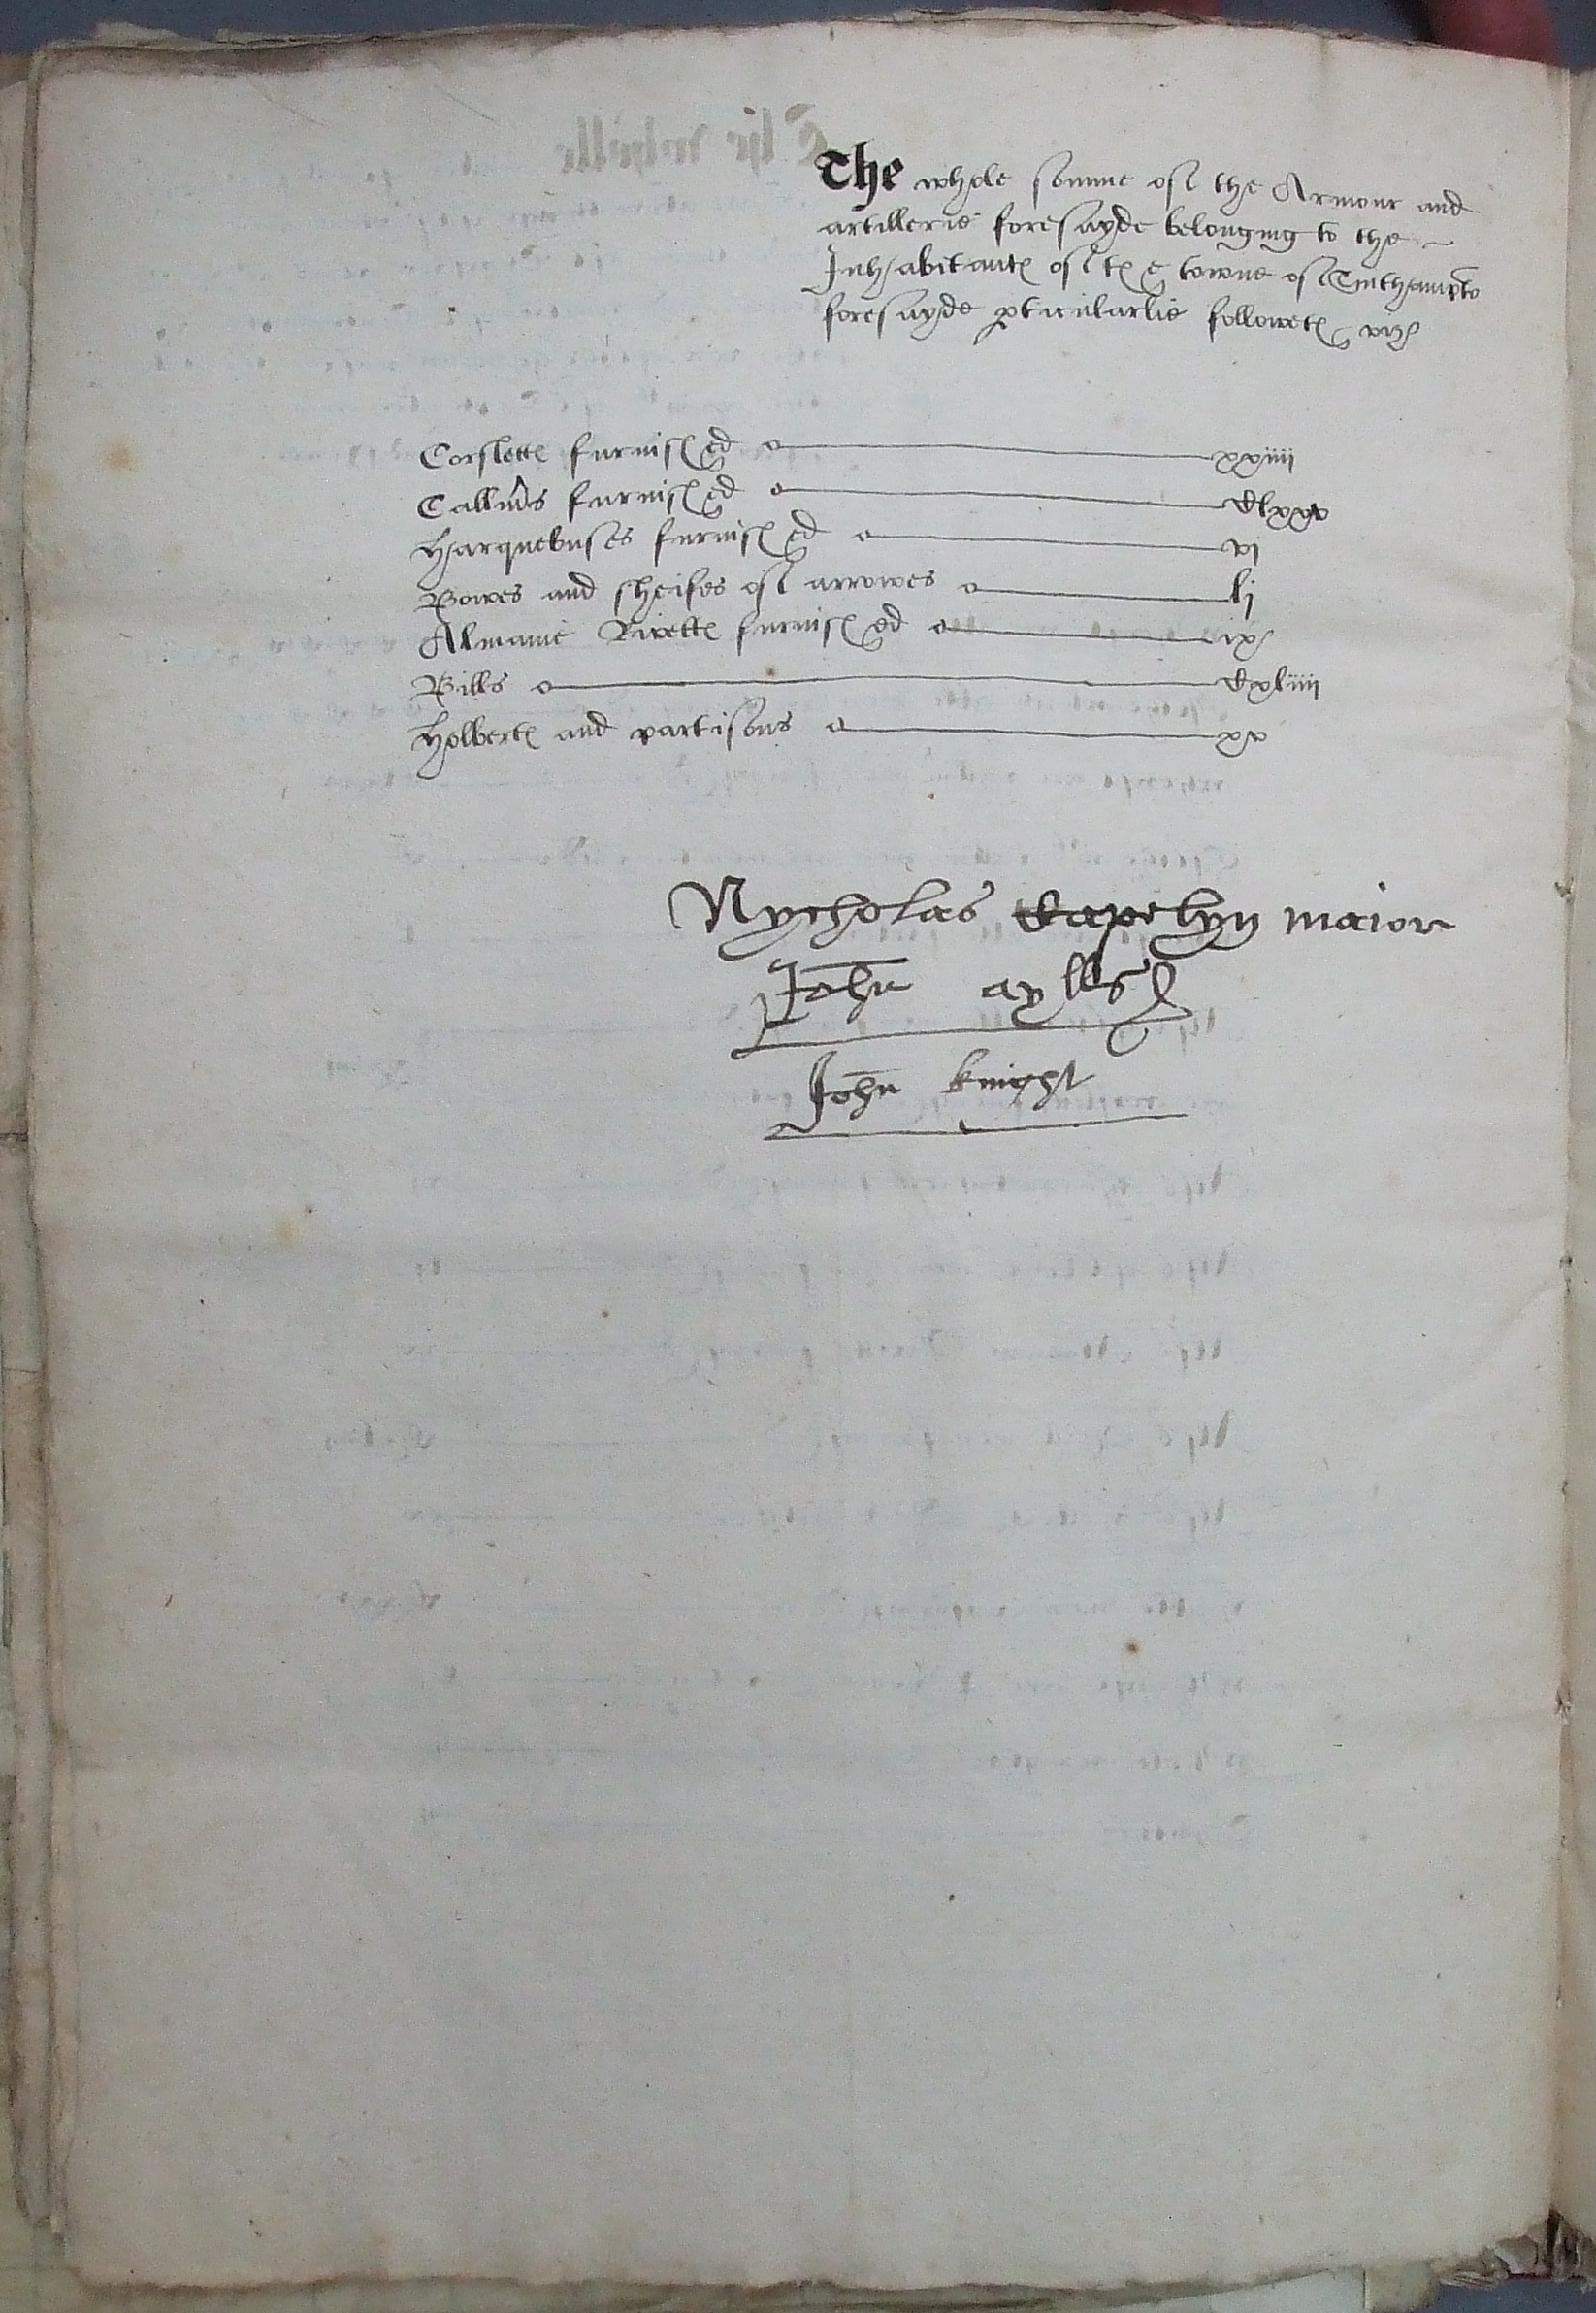 The whole somme of the Armour and
artillerie foresayde belonging to the
Inhabitantes of the towne of Suthampto
foresayde pticularlie followeth viz
Corslettes furnished xxiiii
Callivs furnished Clxxv
Harquebuses furnished vi
Bowes and sheifes of arrowes li
Almanie Rivettes furnished ix
Bills Cxliiii
Holbertes and partisons xv
Nycholas Capelyn maior
John aylles
John knight